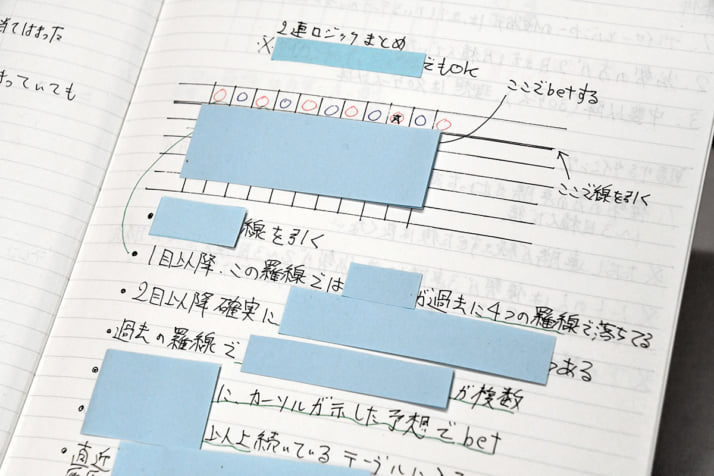 当てはまった
まっていても
2連ロジックまとめ
※
でもOK
ここでbetする
ここで線を引く
線を引く
1目以降、この羅線では
が過去に4つの羅線で落ちてる
2目以降確実に
ある
過去の羅線で
が複数
にカーソルが示した予想でbet
以上続いているテーブルに入る
直近